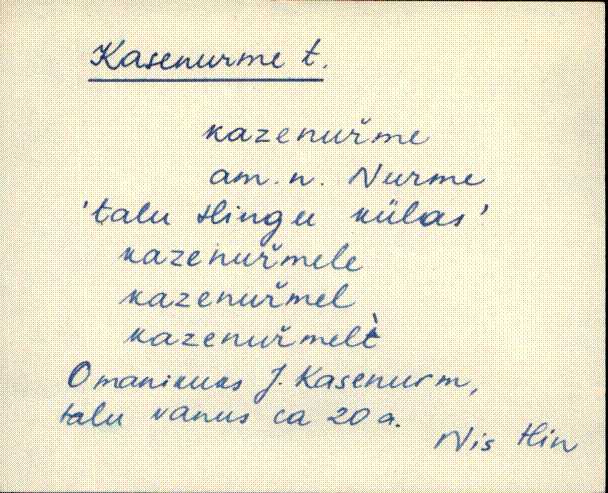 Kasenurme t.
kazenuřme
am. n. Nurme
'talu Hingu külas'
kazenuřmele
kazenuřmel
kazenuřmelt̀
Omanikuks J. Kasenurm,
talu vanus ca 20 a.
Nis Hin